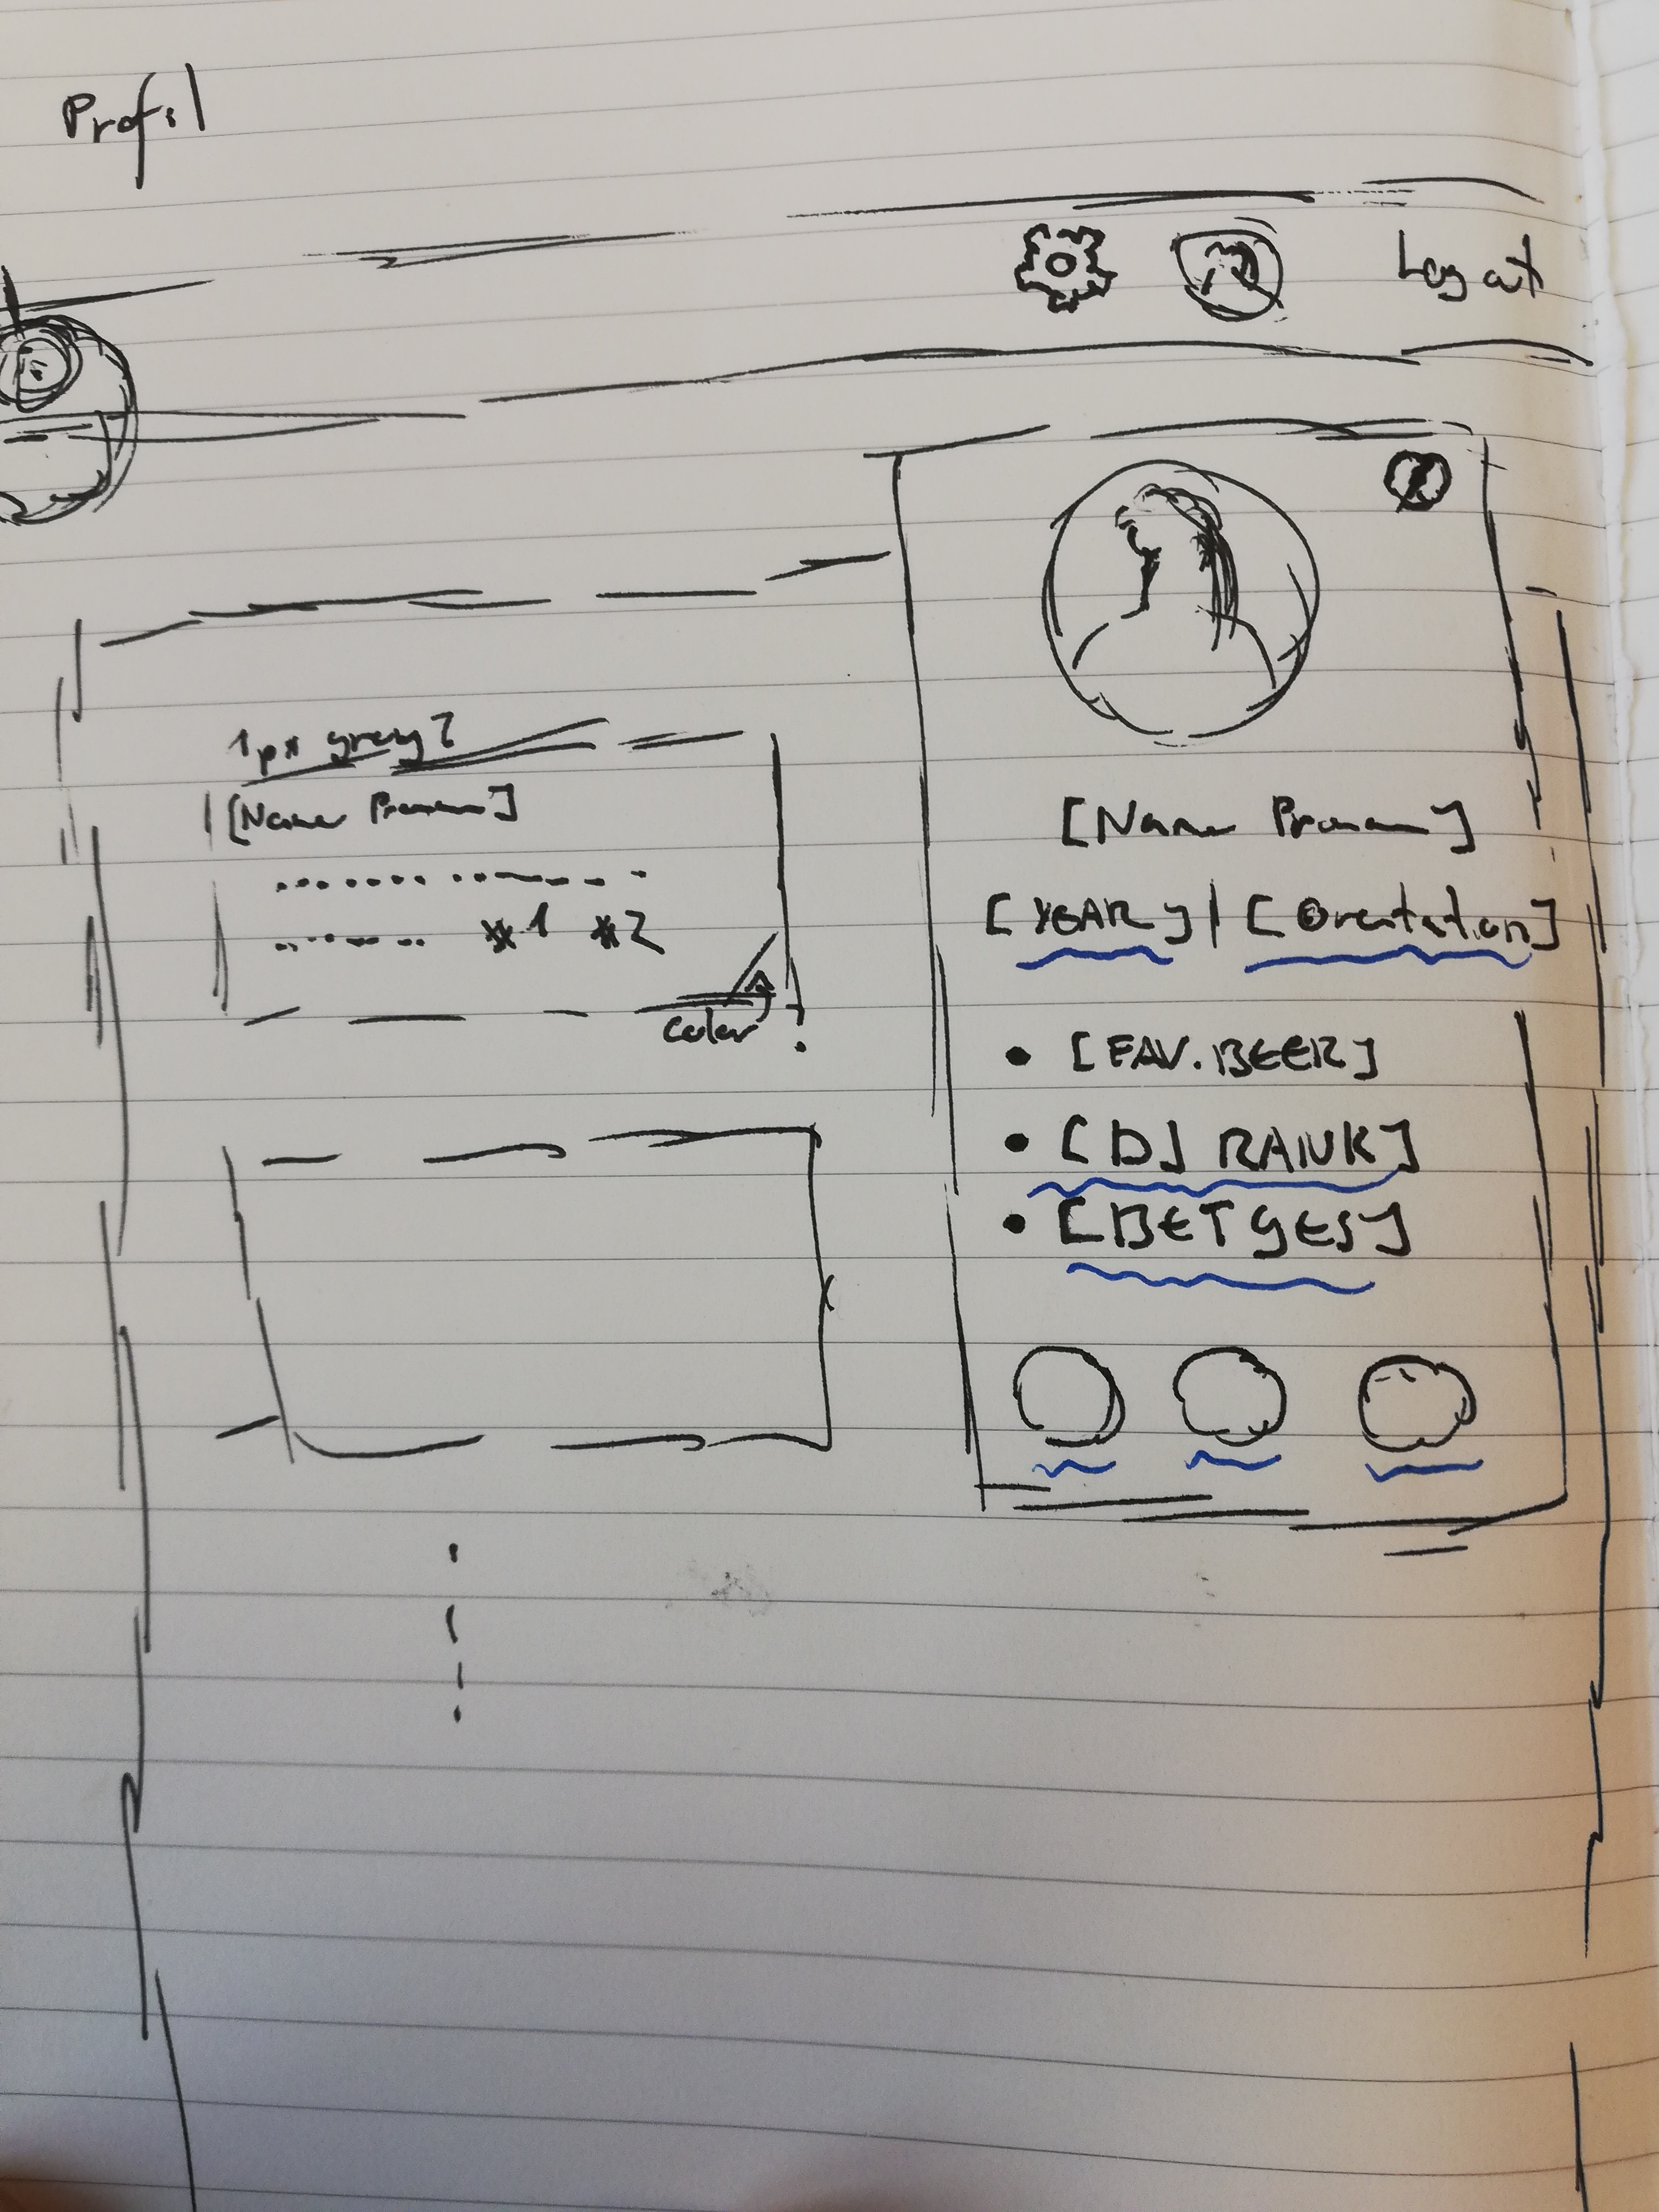 Profil
Logout
1px grey?
[Name Prenom]
#1 #2
color
[Name Prenom]
[YEAR] | [Orentation]
• [FAV. BEER]
• [DJ RANK]
• [BET GES]